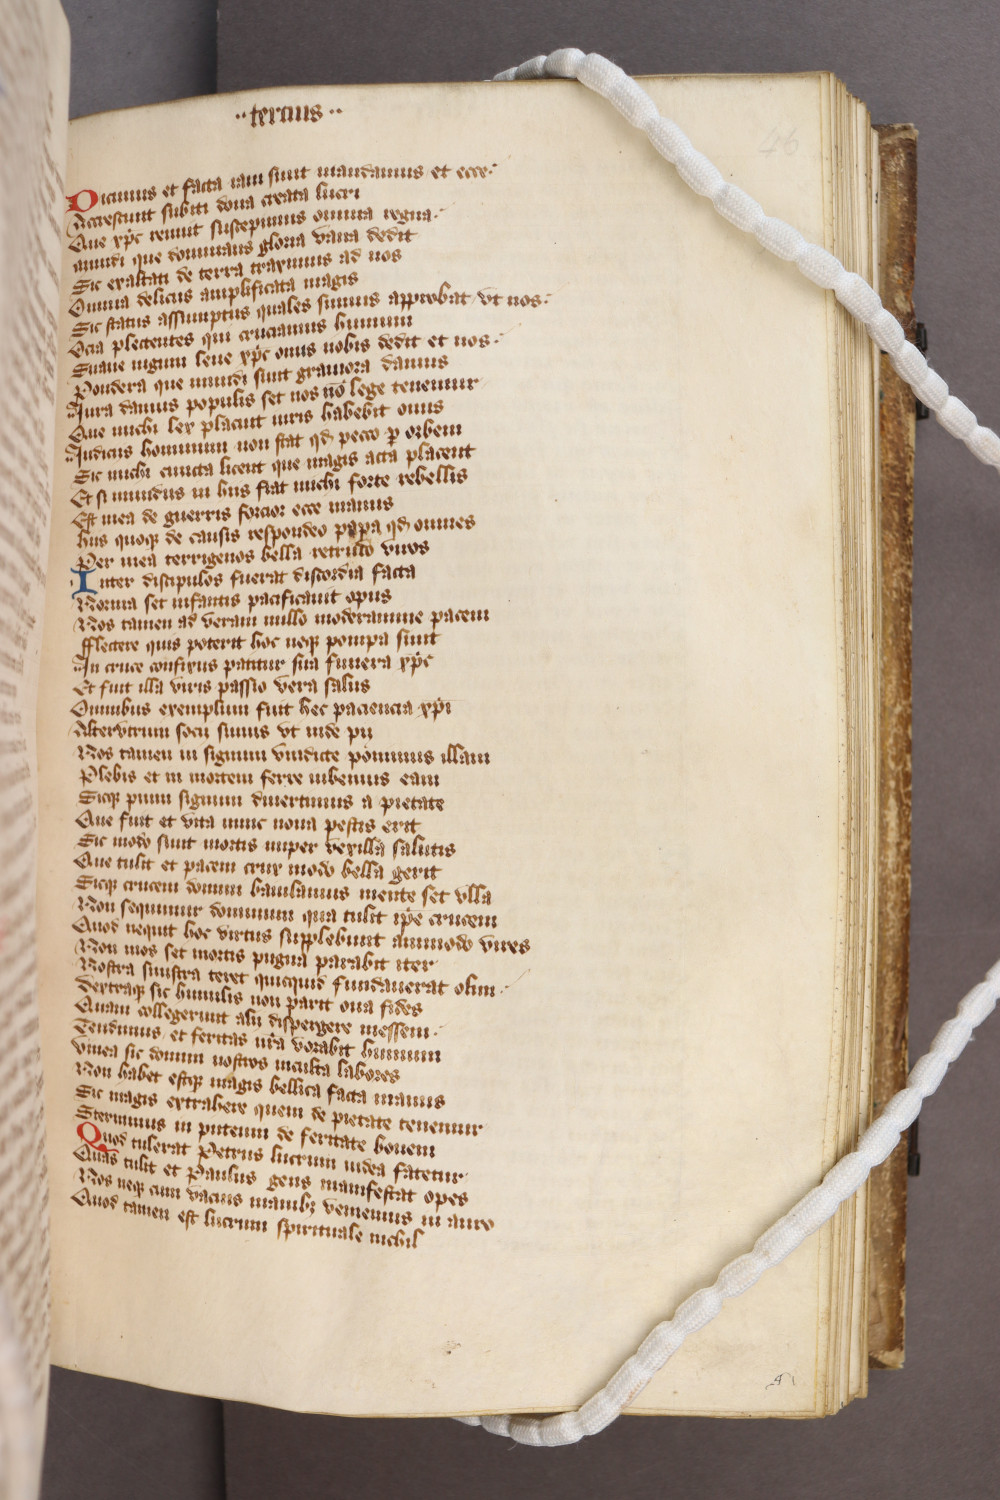 ··tercius··
46
Dicimus et facta iam sunt mandamus et ecce
Accrescunt subiti dona creata lucri
Que xp̄c renuit suscepimus omnia regna
mundi que dominans gloria vana dedit
Sic exaltati de terra traximus ad nos
Omnia deliciis amplificata magis
Sic status assumptus quales simus approbat vt nos
Ocia plectentes qui cruciamus humum
Suaue iugum leue xp̄c onus nobis dedit et nos
Pondera que mundi sunt grauiora damus
Iura damus populis set nos nō lege tenemur
Que michi lex placuit iuris habebit onus
Iudiciis hominum non stat qd̛ pecco ꝑ orbem
Sic michi cuncta licent que magis acta placent
Et si mundus in hiis fiat michi forte rebellis
Est mea de guerris forcior ecce manus
hiis quoqꝫ de causis respondeo papa qd̛ omnes
Per mea terrigenos bella retrudo viros
Inter discipulos fuerat discordia facta
Norma set infantis pacificauit opus
Nos tamen ad veram nullo moderamine pacem
fflectere quis poterit hoc neqꝫ pompa sinit
In cruce confixus patitur sua funera xp̄c
Et fuit illa viris passio vera salus
Omnibus exemplum fuit hec paciencia xp̄i
Alterutrum socii simus vt inde pii
Nos tamen in signum vindicte ponimus illam
Plebis et in mortem ferre iubemus eam
Sicqꝫ pium signum diuertimus a pietate
Que fuit et vita nunc noua pestis erit
Sic modo sunt mortis nuper vexilla salutis
Que tulit et pacem crux modo bella gerit
Sicqꝫ crucem domini baiulamus mente set vlla
Non sequimur dominum qua tulit ip̄e crucem
Quod nequit hoc virtus supplebunt ammodo vires
Non mos set mortis pugna parabit iter
Nostra sinistra teret quicquid fundauerat olim
dextraqꝫ sic humilis non parit oua fides
Quam collegerunt alii dispergere messem
Tendimus et feritas nr̄a vorabit humum
vinea sic domini nostros inculta labores
Non habet estqꝫ magis bellica facta manus
Sic magis extrahere quem de pietate tenemur
Sternimus in puteum de feritate bouem
Quod tulerat Petrus lucrum iudea fatetur
Quas tulit et Paulus gens manifestat opes
Nos neqꝫ cum vacuis manibꝫ veniemus in auro
Quod tamen est lucrum spirituale nichil